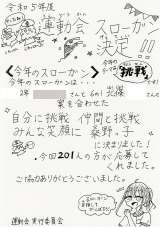 令和5年度
運動会 スローガン
決定!!
今年のスローガン
今年の
挑戦
今年のスローガンは…
2年
さんと6の1
さん
案を合わせた
自分に挑戦 仲間と挑戦
みんな笑顔に 桑野っ子
今回201人の方が応募して
くれました。
ご協力ありがとうございました。
運動会 実行委員会